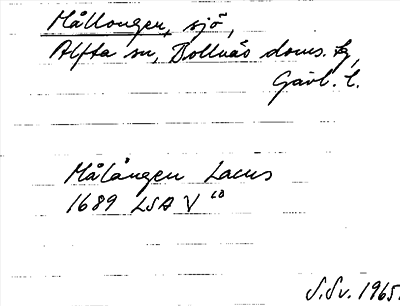 Mållongen, sjö,
Alfta sn, Bollnäs doms.
Gävl. l.
Målången Lacus
1689 LSA V 60
S.Sv. 1965.